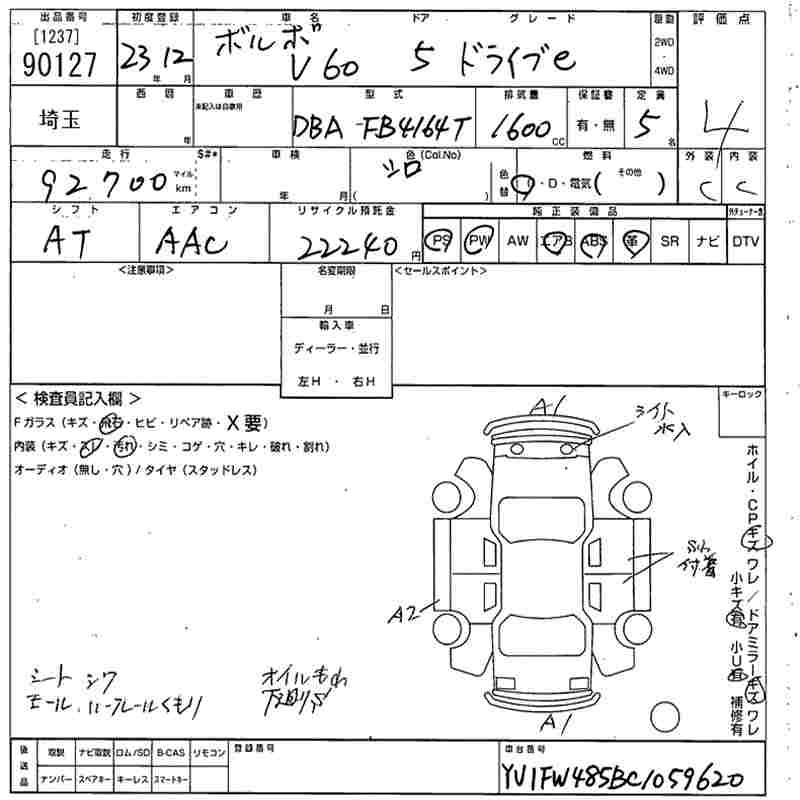 出品番号 初度登録 車名 ドア グレード 駆動 評価点
[1237]
90127 23 12 ボルボ V60 5 ドライブe 2WD・4WD 4
年 月
西暦 車歴 型式 排気量 保証書 定員
未記入は自家用
埼玉 年 DBA-FB4164T 1600 CC 有・無 5 名
走行 S#* 車検 色(Cal.No) 燃料 外装 内装
92,700 マイル km 年 月 シロ ( ) 色替 G・D・電気( その他 ) C C
シフト エアコン リサイクル預託金 純正装備品 外チューナー含
AT AAC 22240 円 PS PW AW エアB ABS 革 SR ナビ DTV
<注意事項> 名変期限 <セールスポイント>
月 日
輸入車
ディーラー・並行
左H ・ 右H
<検査員記入欄> キーロック
Fガラス(キズ・飛石・ヒビ・リペア跡・X要)
内装(キズ・スレ・汚れ・シミ・コゲ・穴・キレ・破れ・割れ)
オーディオ(無し・穴)/タイヤ(スタッドレス)
A1
ライト
水入
付着
A2
A1
ホイル・CPキズ ワレ/ドアミラーキズ ワレ
小キズ有 小U有 補修有
シート シワ
モール、ルーフレールくもり
オイルもれ
下廻りサビ
後送品 取説 ナビ取説 ロム/SD B-CAS リモコン 登録番号 車台番号
ナンバー スペアキー キーレス スマートキー YV1FW485BC1059620